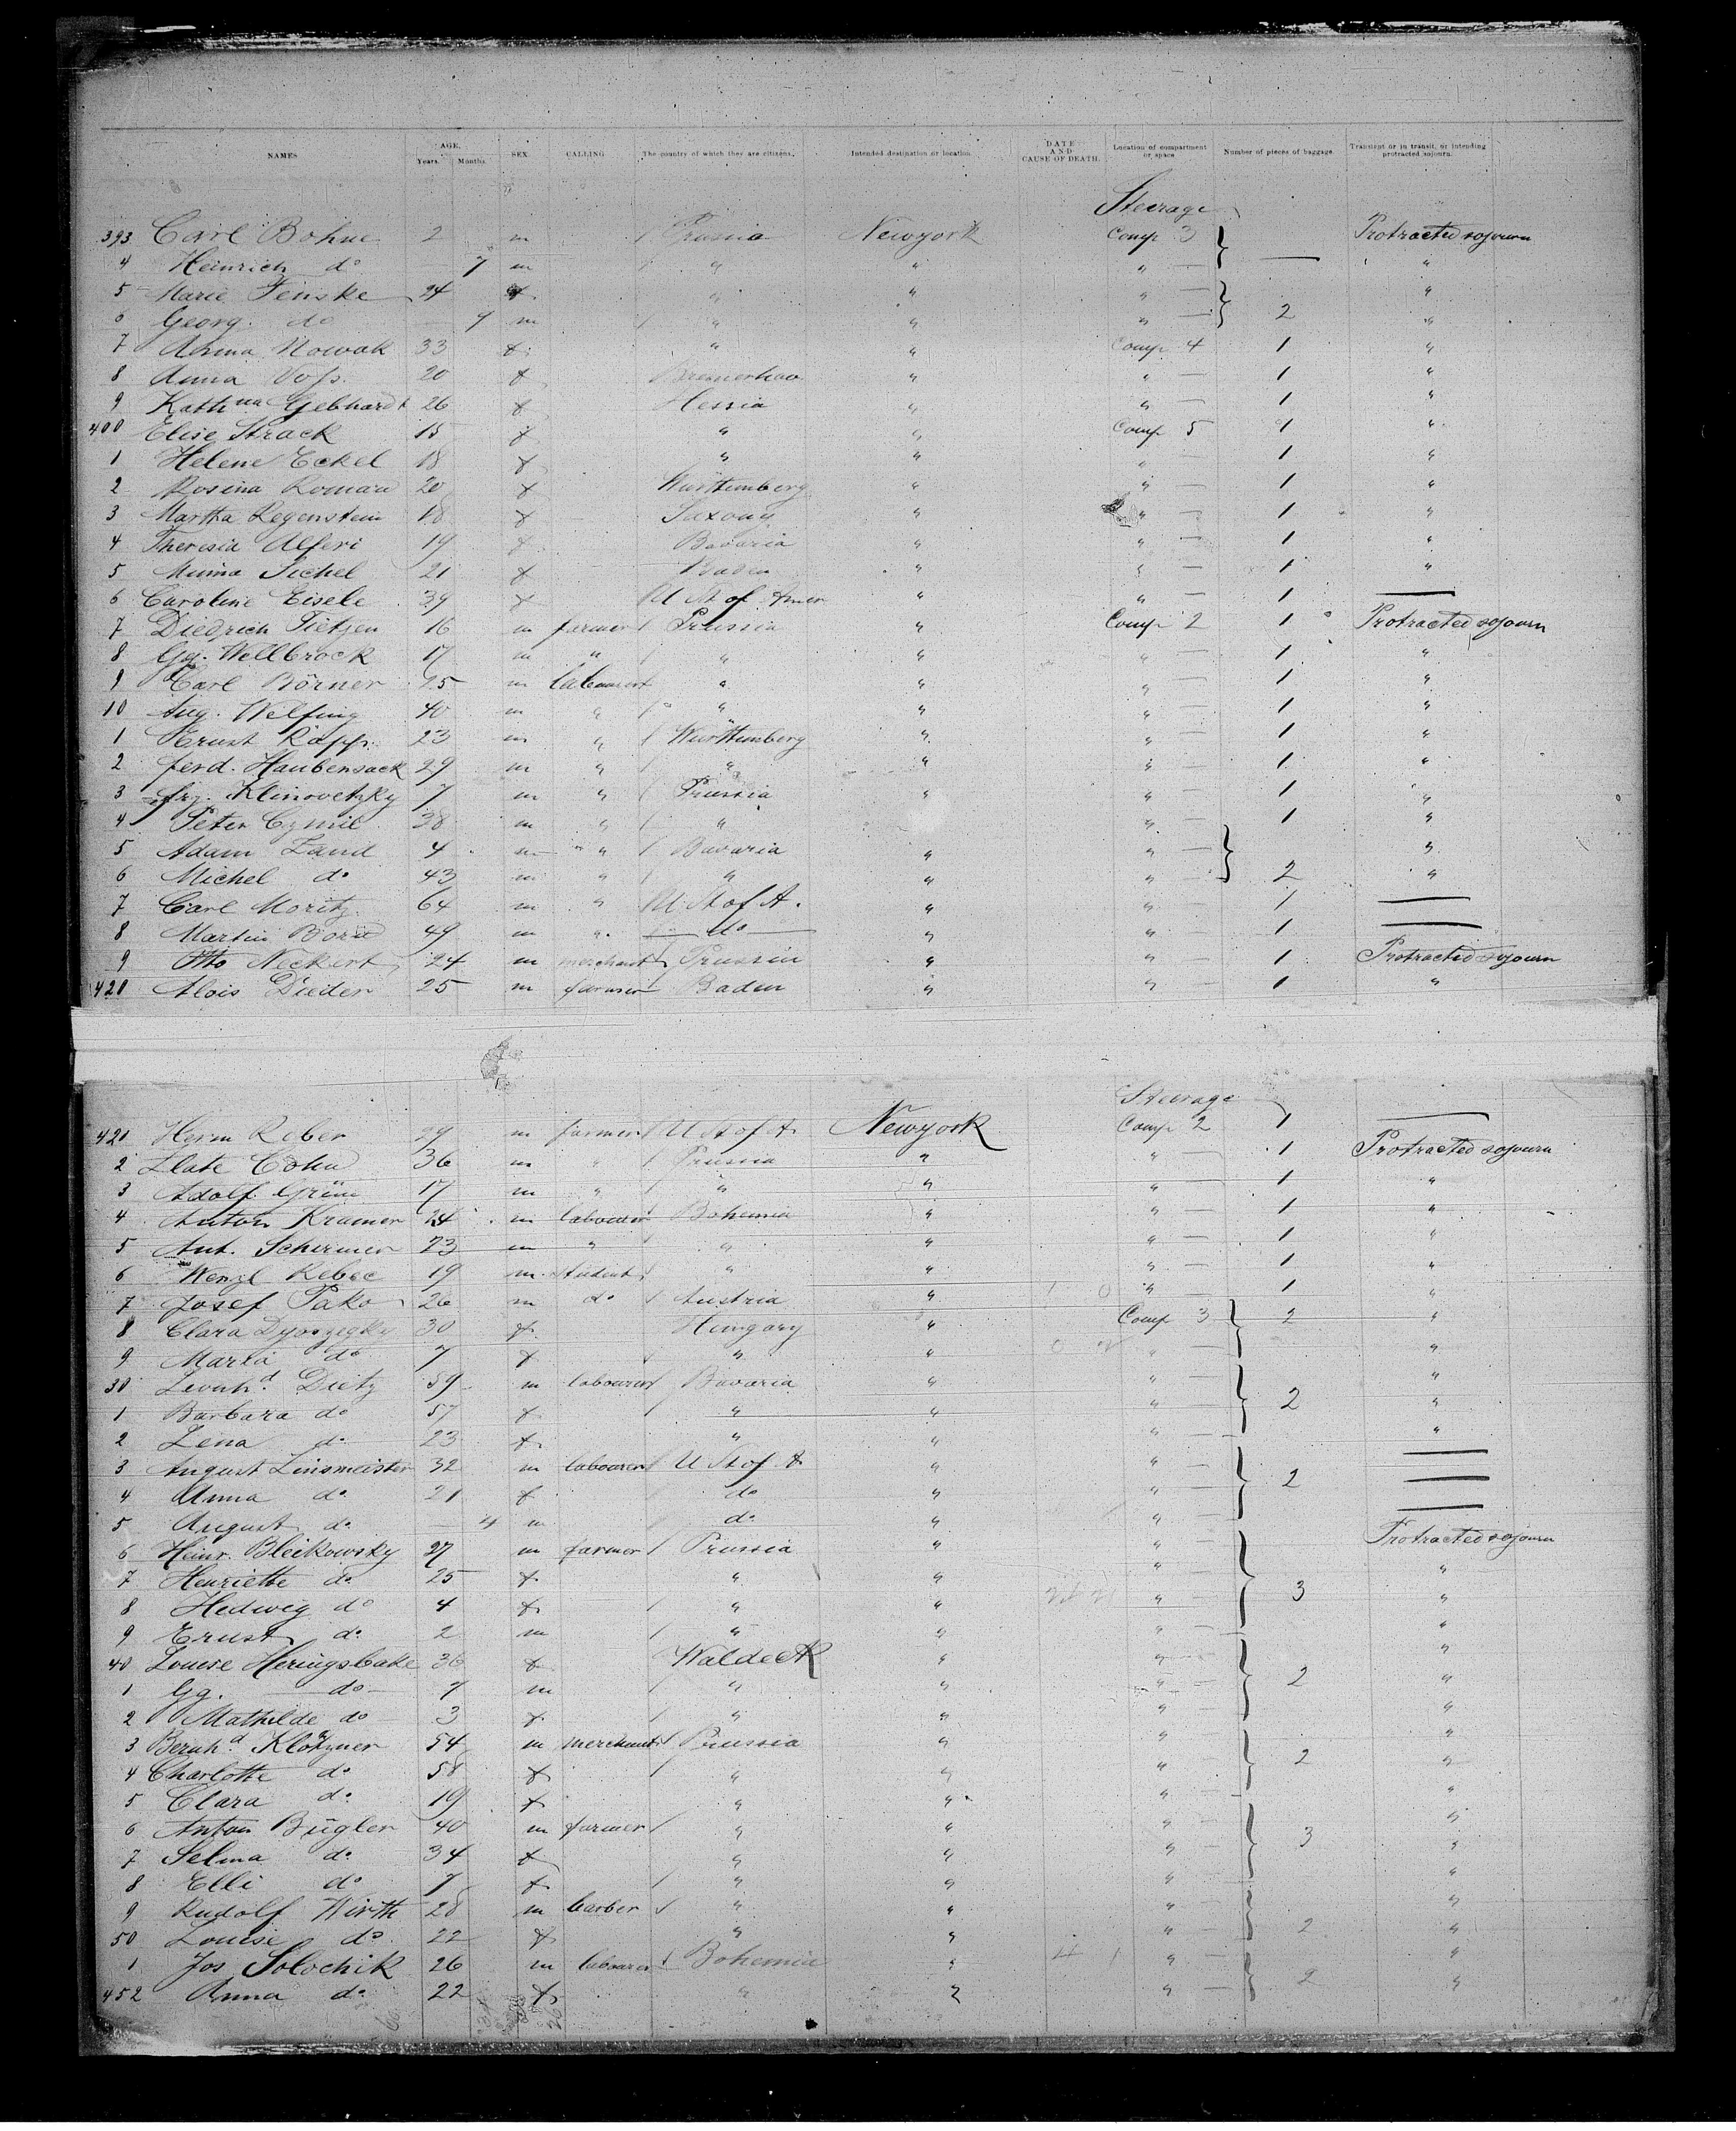 NAMES AGE. Years. Months. SEX. CALLING The country of which they are citizens. Intended destination or location. DATE AND CAUSE OF DEATH. Location of compartment or space Number of pieces of baggage. Transient or in transit, or intending protracted sojourn.
Steerage
393 Carl Bohne 2 m / Prussia Newyork Comp 3 Protracted sojourn
4 Heinrich do — 7 m / " " " — — "
5 Marie Fenske 24 f " " " — "
6 Georg. do — 7 m / " " " — 2 "
7 Anna Nowak 33 f " " Comp 4 1 "
8 Anna Voss 20 f Bremerhav " " — 1 "
9 Kathna Gebhardt 26 f Hessia " " — 1 "
400 Elise Strack 15 f " " Comp 5 1 "
1 Helene Eckel 18 f " " " — 1 "
2 Rosina 20 f Württemberg " " — 1 "
3 Martha Legenstein 18 f Saxony " " — 1 "
4 Theresia Alferi 19 f Bavaria " " — 1 "
5 Sichel 21 f Baden " " — 1 "
6 Caroline Eisele 39 f U St of Amer " " — 1 —
7 Diedrich Tietjen 16 m farmer / Prussia " Comp 2 1 Protracted sojourn
8 Gg. Wellbrock 17 m " / " " " — 1 "
9 Carl Börner 25 m labourer / " " " — 1 "
10 Aug. Welfing 40 m " / " " " — 1 "
1 Ernst Rapp 23 m " / Württemberg " " — 1 "
2 ferd. Haubensack 29 m " / " " " — 1 "
3 frz. Klinovetzky 7 m " / Prussia " " — 1 "
4 Peter 38 m " / " " " — 1 "
5 Adam Zand 4 m " / Bavaria " " — "
6 Michel do 43 m " / " " " — 2 "
7 Carl Moritz 64 m " / U. St of A. " " — 1 —
8 Martin 49 m " — do — " " — 1 —
9 Otto Neckert 24 m merchant / Prussia " " — 1 Protracted sojourn
420 Alois Dieder 25 m farmer / Baden " " — 1 "
Steerage
421 Herm Reber 29 m farmer / U St of A Newyork Comp 2 1 —
2 Cohn 36 m " / Prussia " " — 1 Protracted sojourn
3 Adolf Grün 17 m " / " " " — 1 "
4 Anton Kramer 24 m labourer Bohemia " " — 1 "
5 Ant. Schirmer 23 m " / " " " — 1 "
6 Wenzl Rebec 19 m student / " " " — 1 "
7 Josef Pako 26 m do / Austria " " — 1 "
8 Clara 30 f Hungary " Comp 3 2 "
9 Maria do 7 f / " " " — "
30 Leonhd Dietz 59 m labourer / Bavaria " " — "
1 Barbara do 57 f / " " " — 2 "
2 Lena do 23 f " " " — "
3 August Linsmeister 32 m labourer / U St of A " " — —
4 Anna do 21 f do " " — 2 —
5 August do — 4 m / do " " — —
6 Heinr. Bleikowsky 27 m farmer / Prussia " " — Protracted sojourn
7 Henriette do 25 f " " " — "
8 Hedwig do 4 f / " " " — 3 "
9 Ernst do 2 m / " " " — "
40 Louise Heringslake 36 f Waldeck " " — "
1 Gg. — do — 7 m / " " " — 2 "
2 Mathilde do 3 f / " " " — "
3 Bernhd Klotzner 54 m merchant / Prussia " " — "
4 Charlotte do 58 f / " " " — 2 "
5 Clara do 19 f " " " — "
6 Anton Bügler 40 m farmer / " " " — "
7 Selma do 34 f " " " — 3 "
8 Elli do 7 f / " " " — "
9 Rudolf Wirth 28 m barber / " " " — "
50 Louise do 22 f " " " — 2 "
1 Jos Solochik 26 m labourer / Bohemia " " — "
452 Anna do 22 f " " " — 2 "